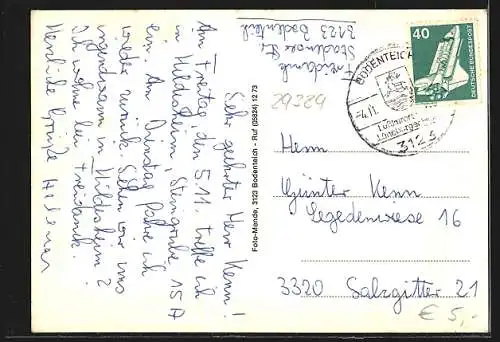 Sehr geehrter Herr Kenn!
Am Freitag, den 5.11. treffe ich
in Hildesheim, Steingrube 15A
ein. Am Dienstag fahre ich
wieder zurück. Sehen wir uns
irgendwann in Hildesheim?
Ich wohne bei Freidank.
Herzliche Grüße
Freidank
3123 Bodenteich
Foto-Mende, 3123 Bodenteich - Ruf (05824) 12 73
29384
40
DEUTSCHE BUNDESPOST
BODENTEICH
-4.11.
Luftkurort
Lüneburger
3123
Herrn
Günter Kenn
Segedenwese 16
3320 Salzgitter 21
€ 5,-